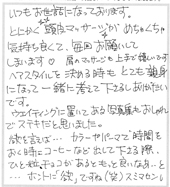 いつもお世話になっております。
とにかく頭皮マッサージがめちゃくちゃ
気持ち良くて、毎回お願いして
しまいます♡ 肩のマッサージも上手で嬉しいです
ヘアスタイルを決める時もとても親身
になって一緒に考えて下さるしありがたい
です。
ウェイティングに置いてある写真集もおしゃれ
でステキだと思いました。
欲を言えば… カラーやパーマで時間を
おく時にコーヒーなど出して下さる際、
ひと粒チョコがあるともっと良いなあーと
… ホントに「欲」ですね(笑)スミマセン!